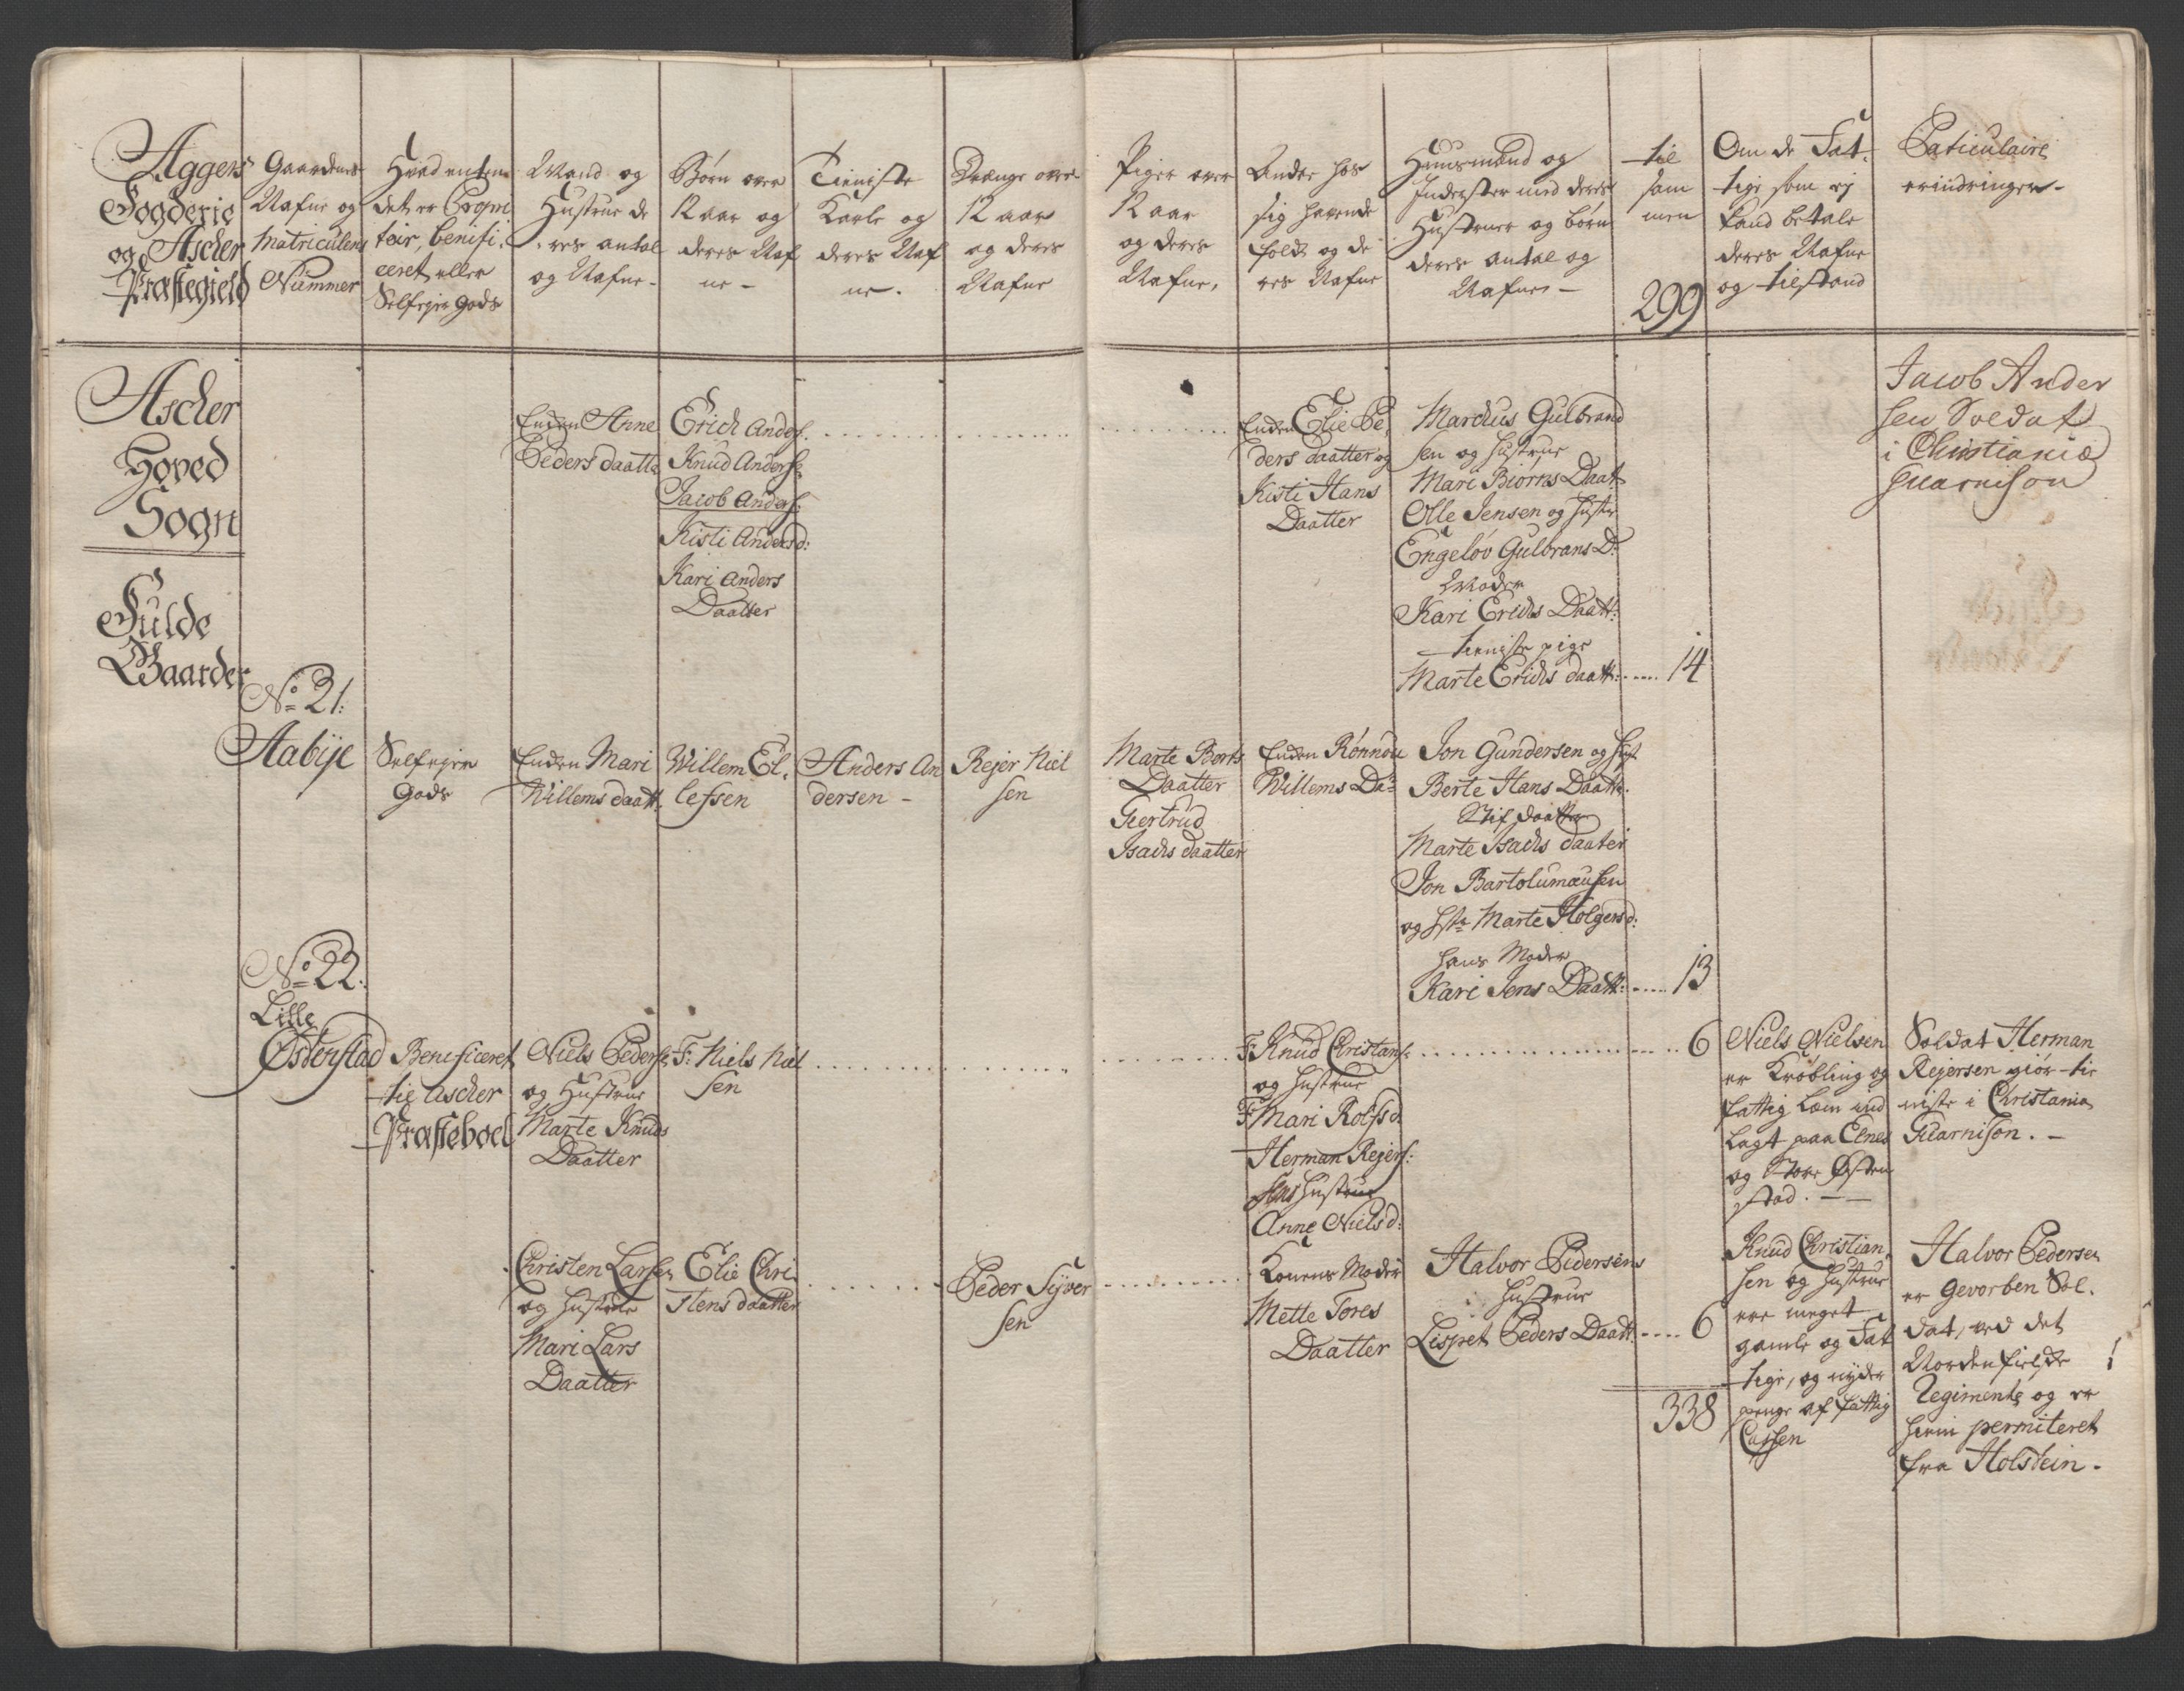 Aggers
Fogderie
og Ascher
Præstegield
Gaardenes
Nafne og
Matriculens
Nummer
Hvad enten
det er Propri
tair, benifi-
ceret eller
Selfejer Gods
Mand og
Hustrue de
res antal
og Nafne-
Børn over
12 aar og
deres Naf
ne-
Tieniste
Karle og
deres Naf
ne.
Drænge over
12 aar
og deres
Nafne
Piger over
12 aar
og deres
Nafne,
Andre hos
sig havende
folk og de
res Nafne
Huusmænd og
Inderster med deres
Hustruer og børn
deres antal og
Nafne-
til
sam
men
299
Om de Fat-
tige som ej
kand betale
deres Nafne
og tilstand
Paticulaire
erindringer-
Ascher
Hoved
Sogn
Fulde
Gaarder
Enken Anne
Peders daatte
Erich Anders:
Knud Anderse
Jacob Anders:
Kisti Andersd:
Kari Anders
Daatter
Enken Elie Pe
ders daatter og
Kisti Hans
Daatter
Marchus Gulbrand
sen og Hustrue
Mari Biørns Daat
Olle Jensen og Hustr
Engeløv Gulbrans D:
Moder
Kari Erichs Daatt:
tieniste pige
Marte Erichs daatt: 14
Jacob Ander
sen Soldat
i Christiania
Guarnison
No 21:
Aabÿe
Selfejer
Gods
Enken Mari
Willems daatt.
Willem El-
lefsen
Anders An
dersen -
Rejer Niel
sen
Marte Børts
Daatter
Giertrud
Isachs daatter
Enken Rønnou
Willems Da
Jon Gundersen og Hust
Berte Hans Daatte.
Stif daatter
Marte Isachs daater
Jon Bartolumæusen
og Hstr Marte Holgersd:
hans Moder
Kari Jens Daatt: 13
No 22:
Lille
Østenstad
Beneficeret
til Ascher
Præsteboel
Niels Peders
og Hustrue
Marte Knuds
Daatter
F: Niels Niel
sen
F: Knud Christians:
og Hustrue
F: Mari Rolfsd
Herman Rejers:
sens Hustrue
Anne Nielsd:
6
Niels Nielsen
er Krøbling og
fattig Lem ind
lagt paa Elnes
og Store Østen
stad. -
Soldat Herman
Rejersen giør tie
niste i Christania
Guarnison. -
Christen Larsen
og Hustrue
Mari Lars
Daatter
Elie Chri
stens daatter
Peder Sÿver
sen
Konens Moder
Mette Tores
Daatter
Halvor Pedersens
Hustrue
Lispet Peders Daatt 6
338
Knud Christian
sen og Hustrue
ere meget
gamle og Fat
tige, og nyder
penge af fattig
Cassen
Halvor Pedersen
er Gevorben Sol-
dat, ved det
Nordenfielske 1
Regimente og er
hiem permiteret
fra Holstein.